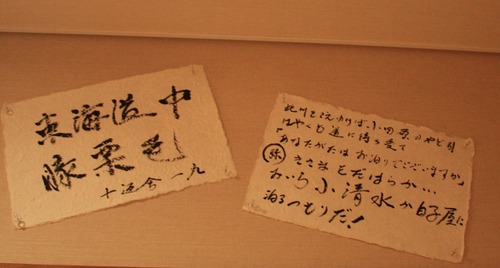 東海道中
膝栗毛
十返舎一九
此川を越ゆけば、小田原のやど引
はやくも道に待ち受て
「あなたがたはお泊りでございますか」
弥 きさまをだはらか…
おいら小清水か白子屋に
泊るつもりだ!